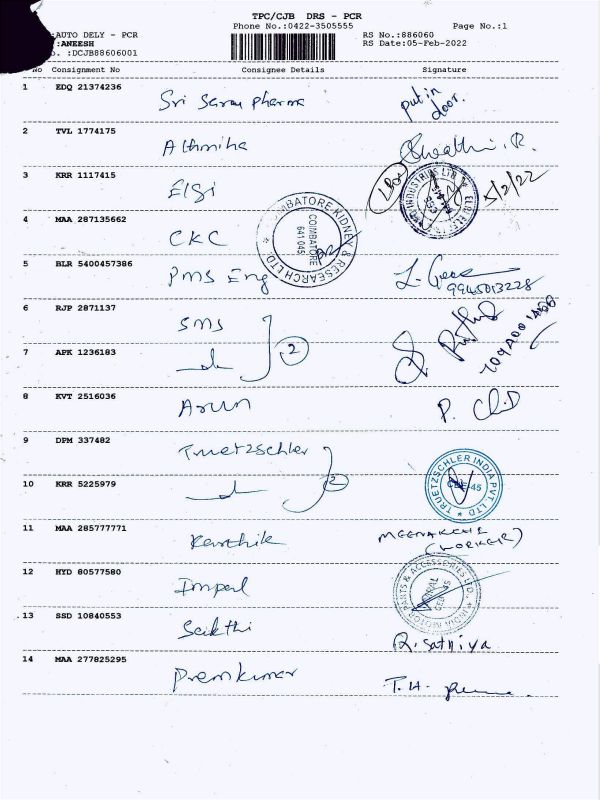 TPC/CJB DRS - PCR
Phone No.:0422-3505555 Page No.:1
:AUTO DELY - PCR RS No.:886060
:ANEESH RS Date:05-Feb-2022
. :DCJB88606001
No Consignment No Consignee Details Signature
1 EDQ 21374236 Sri Saran pharma put in door.
2 TVL 1774175 Swathi. R.
3 KRR 1117415 Elgi 5/2/22
4 MAA 287135662 CKC
COIMBATORE KIDNEY & RESEARCH LTD
COIMBATORE
641 045
5 BLR 5400457386 PMS Eng
9945013228
6 RJP 2871137 SMS
7 APK 1236183 2
8 KVT 2516036 Arun P.
9 DPM 337482 Truetzschler
10 KRR 5225979 2
TRUETZSCHLER INDIA PVT. LTD
CBE-45
11 MAA 285777771 Karthik MEENAKCHI
(WORKER)
12 HYD 80577580
INDIA MOTOR PARTS & ACCESSORIES LTD.
13 SSD 10840553 Sakthi R. Sathiya
14 MAA 277825295 Premkumar T.H.